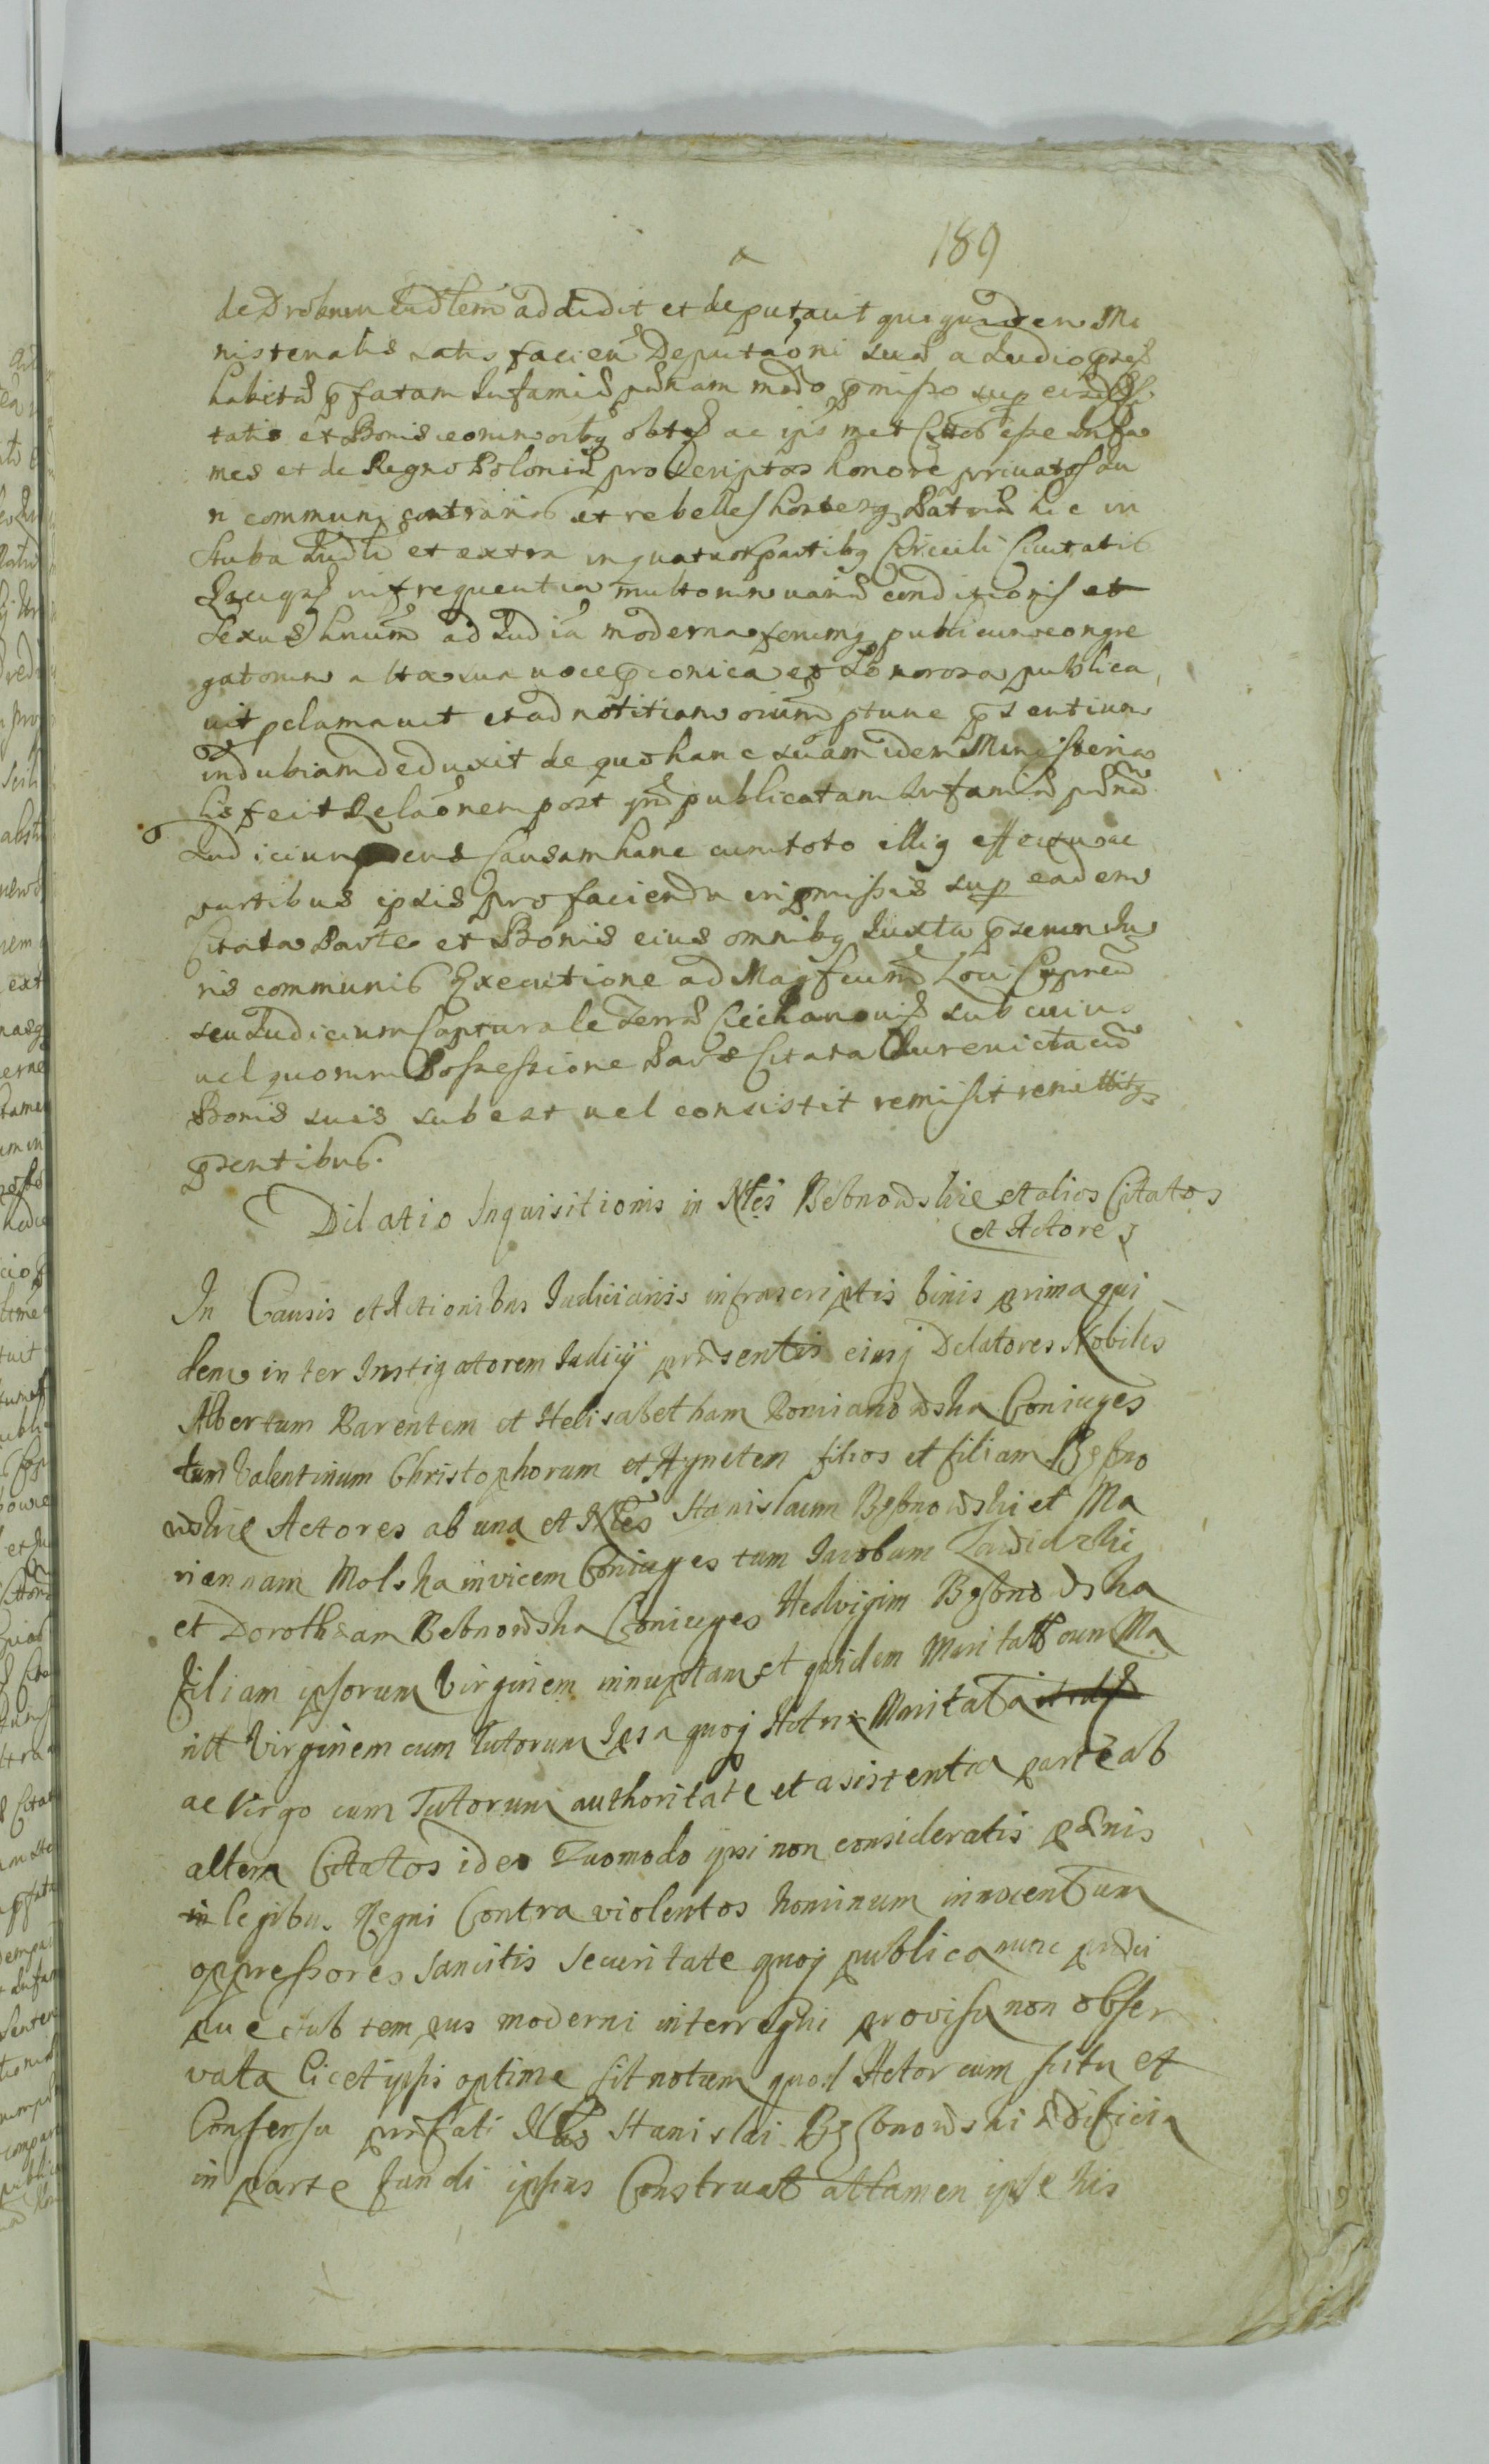 189
de Drobnin Iudlem addidit et deputavit qui quidem Mi
nisterialis satisfacien Deputaoni suæ a Iudio
habitæ pfatam Infamiæ pænam modo pmisso sup
tatis et Bonis eorum oibq obtes ac ipsmet Cittos esse Infa
mes et de Regno Poloniæ proscriptos honore privatos Iu
ri communi contrarios et rebelles hostesq Patriæ hic in
Stuba Iudli et extra in quatuor partibq Circuli Civitatis
in frequentia multorum variæ conditionis et
Sexus hnium ad Iudia moderna forumq publicum congre
gatorum alta sua voce pconica et Sonorosa publica
vit pclamavit et ad notitiam oium ptunc psentium
indubiam deduxit de quo hanc suam idem Ministeria
lis fecit Relaonem post qm publicatam Infamiæ pænam
Iudicium Causam hanc cum toto illiq effectu ac
partibus ipsis pro facienda in pmissis sup eadem
Citata Parte et Bonis eius omnibq Iuxta pscrum Iu
ris communis Executione ad Magfcum Loci Capneum
seu Iudicium Capturale Terræ Ciechanoviæ sub cuius
vel quorum Possessione Pars Citata Iurevicta cum
Bonis suis subest vel consistit remisit remittitq
psentibus.
Dilatio Inquisitionis in Nles Bebnowskie et alios Citatos
et Actores
In Causis et Actionibus Iudiciariis infrascriptis binis prima qui
dem inter Instigatorem Iudicij præsentis eiusq Delatores Nobiles
Albertum Parentem et Helisabetham Romianowska Coniuges
tum Valentinum Christophorum et Agnetem filios et filiam Bębno
wskie Actores ab una et Nles Stanislaum Bębnowski et Ma
riannam Molska invicem Coniuges tum Iacobum Zawidzki
et Dorotheam Bebnowska Coniuges Hedvigim Bębnowska
filiam ipsorum Virginem innuptam et quidem Maritatt cum Ma
ritt Virginem cum Tutorum Ipsa quoq Actrix Maritata
ac Virgo cum Tutorum authoritate et asistentia parte ab
altera Citatos ideo Quomodo ipsi non consideratis pænis
in legibus Regni Contra violentos hominum innocentum
oppressores sancitis securitate quoq publica nunc præci
pue sub tempus moderni interregni provisa non obser
vata licet ipsis optime sit notum quod Actor cum scitu et
Consensu præfati Nlis Stanislai Bębnowski ædificia
in parte fundi ipsius Construat attamen ipse his